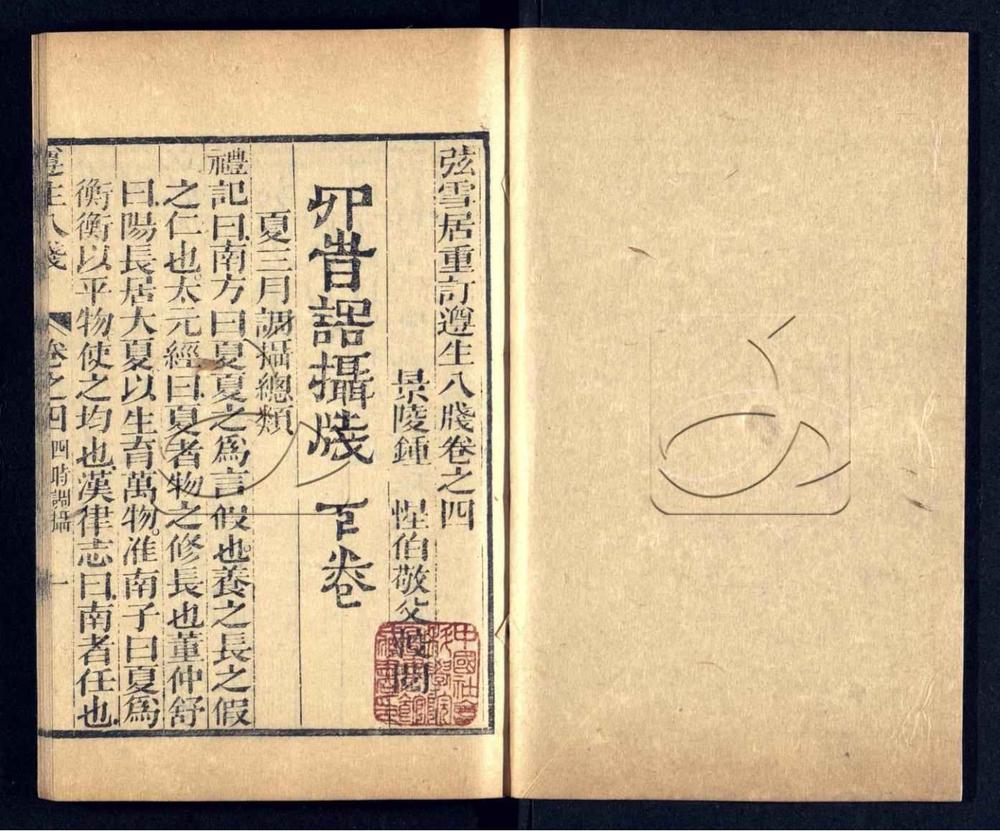 弦雪居重訂遵生八牋卷之四
景陵鍾 惺伯敬父閱
四旹調攝牋 下卷
夏三月調攝總類
禮記曰南方曰夏夏之爲言假也。養之長之假
之仁也。太元經曰夏者物之修長也董仲舒
曰陽長居大夏以生育萬物。淮南子曰夏爲
衡衡以平物使之均也漢律志曰南者任也
遵生八牋 卷之四 四時調攝 一
中國社會
科學院